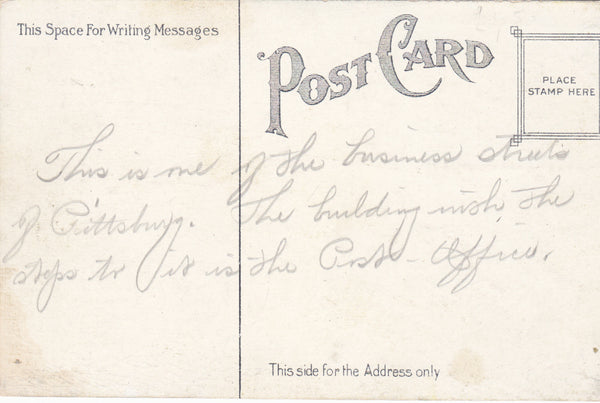 This Space For Writing Messages
POST CARD
PLACE
STAMP HERE
This is one of the business streets
of Pittsburg. The building with the
steps to it is the Post-Office.
This side for the Address only